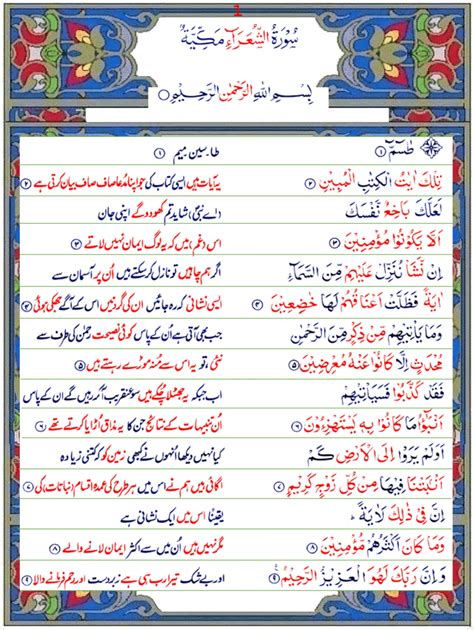 1
سُوۡرَةُ الشُّعَرَآءِ مَكِّيَّةٌ
بِسۡمِ اللّٰهِ الرَّحۡمٰنِ الرَّحِيۡمِ
طٰسٓمّٓ ﴿۱﴾ طا۔ سین میم ﴿۱﴾
تِلۡكَ اٰيٰتُ الۡكِتٰبِ الۡمُبِيۡنِ ﴿۲﴾ یہ آیات ہیں ایسی کتاب کی جو اپنا مدعا صاف صاف بیان کرتی ہے ﴿۲﴾
لَعَلَّكَ بَاخِعٌ نَّفۡسَكَ (اے نبی) شاید تم کھو دو گے اپنی جان
اَلَّا يَكُوۡنُوۡا مُؤۡمِنِيۡنَ ﴿۳﴾ اس غم میں کہ یہ لوگ ایمان نہیں لاتے ﴿۳﴾
اِنۡ نَّشَاۡ نُنَزِّلۡ عَلَيۡهِمۡ مِّنَ السَّمَآءِ اگر ہم چاہیں تو نازل کر سکتے ہیں اُن پر آسمان سے
اٰيَةً فَظَلَّتۡ اَعۡنَاقُهُمۡ لَهَا خٰضِعِيۡنَ ﴿۴﴾ ایسی نشانی کہ رہ جائیں اُن کی گردنیں اس کے آگے جھکی ہوئی ﴿۴﴾
وَمَا يَاۡتِيۡهِمۡ مِّنۡ ذِكۡرٍ مِّنَ الرَّحۡمٰنِ جب بھی آتی ہے اُن کے پاس کوئی نصیحت رحمٰن کی طرف سے
مُحۡدَثٍ اِلَّا كَانُوۡا عَنۡهُ مُعۡرِضِيۡنَ ﴿۵﴾ نئی، تو یہ اس سے مُنہ موڑے رہتے ہیں ﴿۵﴾
فَقَدۡ كَذَّبُوۡا فَسَيَاۡتِيۡهِمۡ اب جبکہ یہ جھٹلا چکے ہیں سو عنقریب آ کر رہیں گے ان کے پاس
اَنۡۢبٰٓؤُا مَا كَانُوۡا بِهٖ يَسۡتَهۡزِءُوۡنَ ﴿۶﴾ اُن تنبیہات کے نتائج جن کا یہ مذاق اُڑایا کرتے تھے ﴿۶﴾
اَوَلَمۡ يَرَوۡا اِلَى الۡاَرۡضِ كَمۡ کیا نہیں دیکھا اُنہوں نے کبھی زمین کو کہ کتنی زیادہ
اَنۡۢبَتۡنَا فِيۡهَا مِنۡ كُلِّ زَوۡجٍ كَرِيۡمٍ ﴿۷﴾ اگائی ہیں ہم نے اس میں ہر طرح کی عمدہ اقسام (نباتات کی) ﴿۷﴾
اِنَّ فِىۡ ذٰلِكَ لَاٰيَةً ؕ یقیناً اس میں ایک نشانی ہے
وَمَا كَانَ اَكۡثَرُهُمۡ مُّؤۡمِنِيۡنَ ﴿۸﴾ مگر نہیں ہیں اُن میں سے اکثر ایمان لانے والے ﴿۸﴾
وَاِنَّ رَبَّكَ لَهُوَ الۡعَزِيۡزُ الرَّحِيۡمُ ﴿۹﴾ اور بے شک تیرا رب ہی ہے زبردست اور رحم فرمانے والا ﴿۹﴾